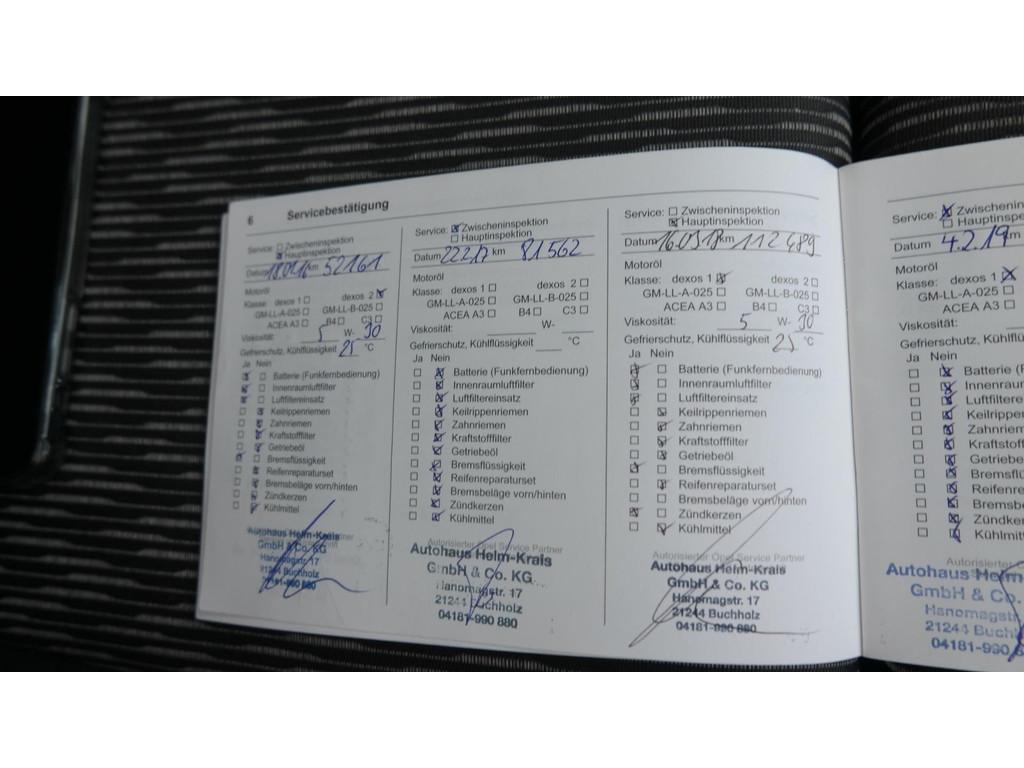 6 Servicebestätigung
Service: Zwischeninspektion
Hauptinspektion
Datum km 52161
Motoröl
Klasse: dexos 1 dexos 2
GM-LL-A-025 GM-LL-B-025
ACEA A3 B4 C3
Viskosität: 5 W- 30
Gefrierschutz, Kühlflüssigkeit 25 °C
Ja Nein
Batterie (Funkfernbedienung)
Innenraumluftfilter
Luftfiltereinsatz
Keilrippenriemen
Zahnriemen
Kraftstofffilter
Getriebeöl
Bremsflüssigkeit
Reifenreparaturset
Bremsbeläge vorn/hinten
Zündkerzen
Kühlmittel
Autohaus Helm-Krais
GmbH & Co. KG
Hanomagstr. 17
21244 Buchholz
04181-990 880
Service: Zwischeninspektion
Hauptinspektion
Datum 22.2.17 km 81562
Motoröl
Klasse: dexos 1 dexos 2
GM-LL-A-025 GM-LL-B-025
ACEA A3 B4 C3
Viskosität: W-
Gefrierschutz, Kühlflüssigkeit °C
Ja Nein
Batterie (Funkfernbedienung)
Innenraumluftfilter
Luftfiltereinsatz
Keilrippenriemen
Zahnriemen
Kraftstofffilter
Getriebeöl
Bremsflüssigkeit
Reifenreparaturset
Bremsbeläge vorn/hinten
Zündkerzen
Kühlmittel
Autorisierter Opel Service Partner
Autohaus Helm-Krais
GmbH & Co. KG
Hanomagstr. 17
21244 Buchholz
04181-990 880
Service: Zwischeninspektion
Hauptinspektion
Datum km 112489
Motoröl
Klasse: dexos 1 dexos 2
GM-LL-A-025 GM-LL-B-025
ACEA A3 B4 C3
Viskosität: 5 W- 30
Gefrierschutz, Kühlflüssigkeit 25 °C
Ja Nein
Batterie (Funkfernbedienung)
Innenraumluftfilter
Luftfiltereinsatz
Keilrippenriemen
Zahnriemen
Kraftstofffilter
Getriebeöl
Bremsflüssigkeit
Reifenreparaturset
Bremsbeläge vorn/hinten
Zündkerzen
Kühlmittel
Autorisierter Opel Service Partner
Autohaus Helm-Krais
GmbH & Co. KG
Hanomagstr. 17
21244 Buchholz
04181-990 880
Service: Zwischenin
Hauptinspe
Datum 4.2.19
Motoröl
Klasse: dexos 1
GM-LL-A-025
ACEA A3
Viskosität:
Gefrierschutz, Kühlflüs
Ja Nein
Batterie (F
Innenraum
Luftfiltere
Keilrippe
Zahnriem
Kraftstof
Getriebe
Bremsfl
Reifenre
Bremsb
Zündke
Kühlmit
Autorisierter
Autohaus Helm
GmbH & Co.
Hanomagstr.
21244 Buchh
04181-990 8